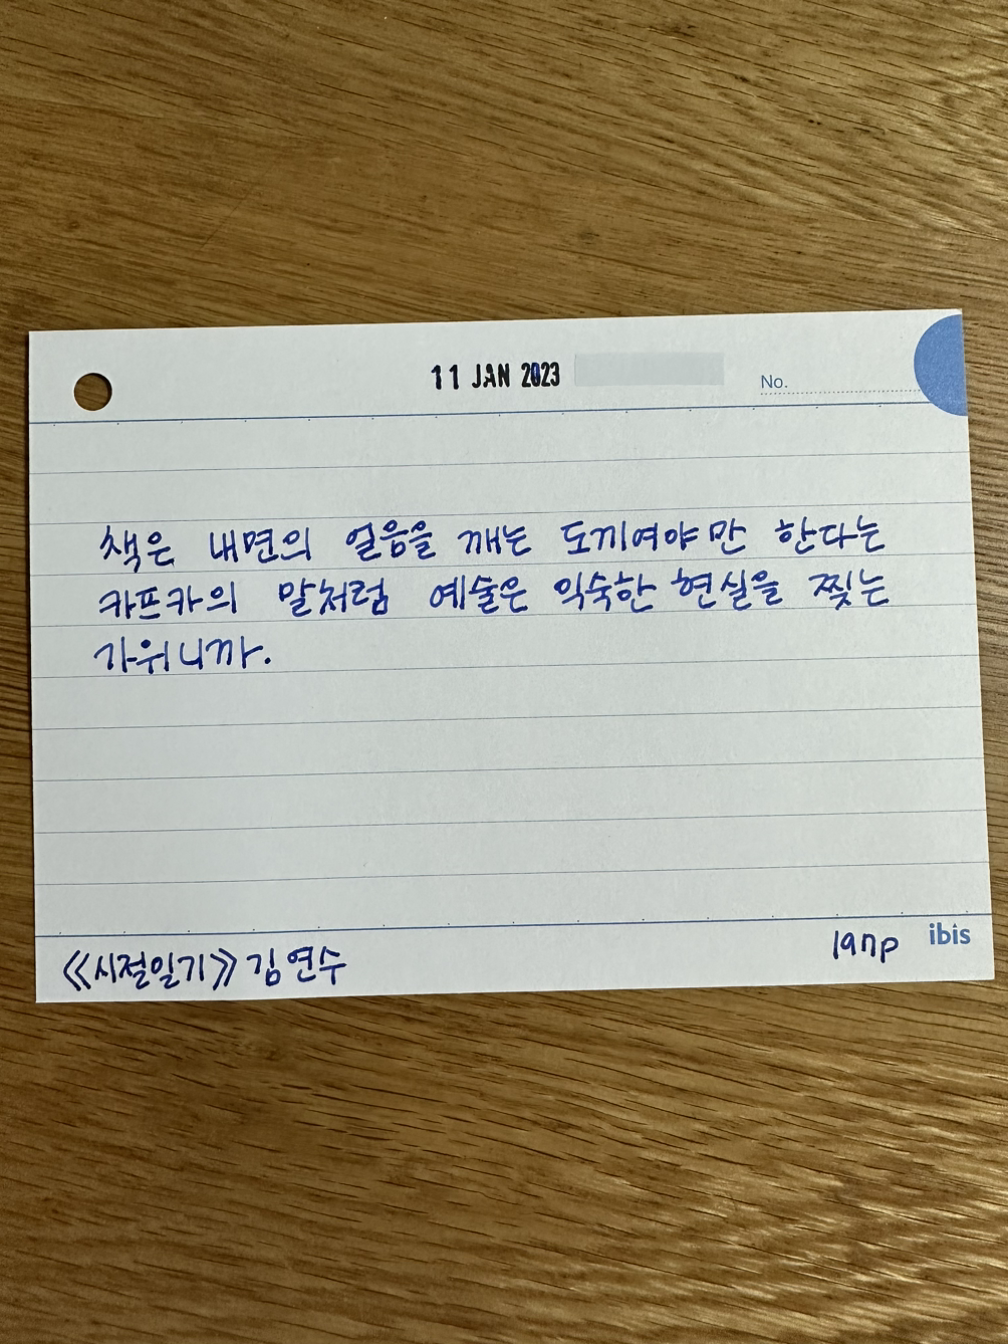 11 JAN 2023
No.
책은 내면의 얼음을 깨는 도끼여야만 한다는
카프카의 말처럼 예술은 익숙한 현실을 찢는
가위니까.
《시절일기》 김연수
197p
ibis